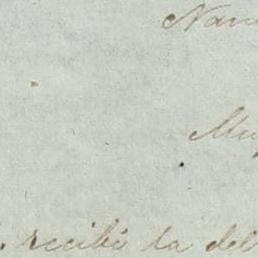 Nan
Muy
recibi la del